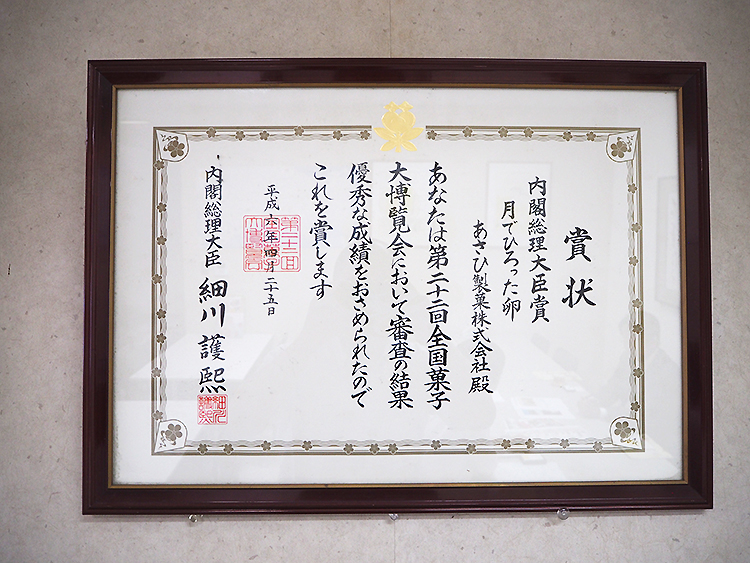 賞状
内閣総理大臣賞
月でひろった卵
あさひ製菓株式会社殿
あなたは第二十二回全国菓子
大博覧会において審査の結果
優秀な成績をおさめられたので
これを賞します
平成六年四月二十五日
内閣総理大臣 細川護熙